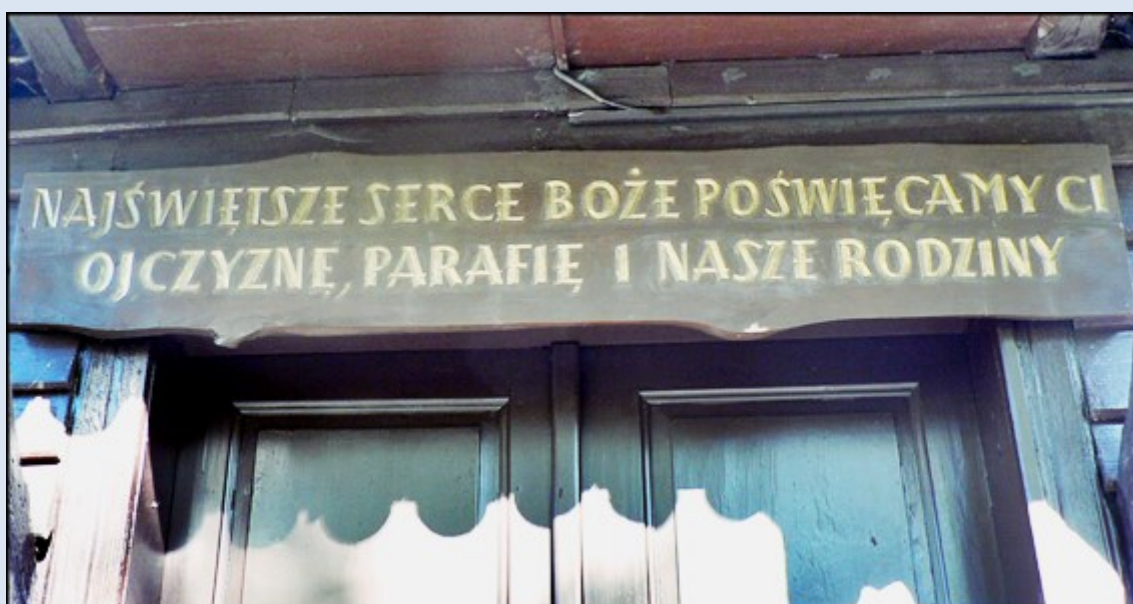 NAJŚWIĘTSZE SERCE BOŻE POŚWIĘCAMY CI
OJCZYZNĘ, PARAFIĘ I NASZE RODZINY